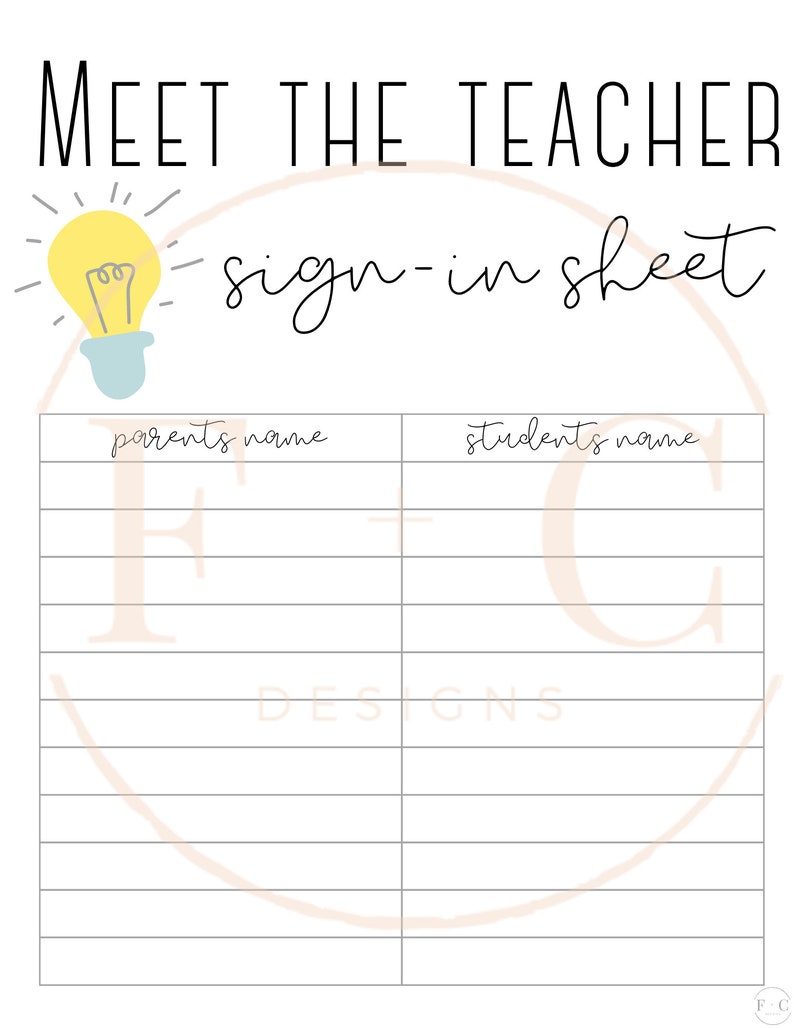 MEET THE TEACHER
sign-in sheet
parents name
students name
F + C
DESIGNS
F + C